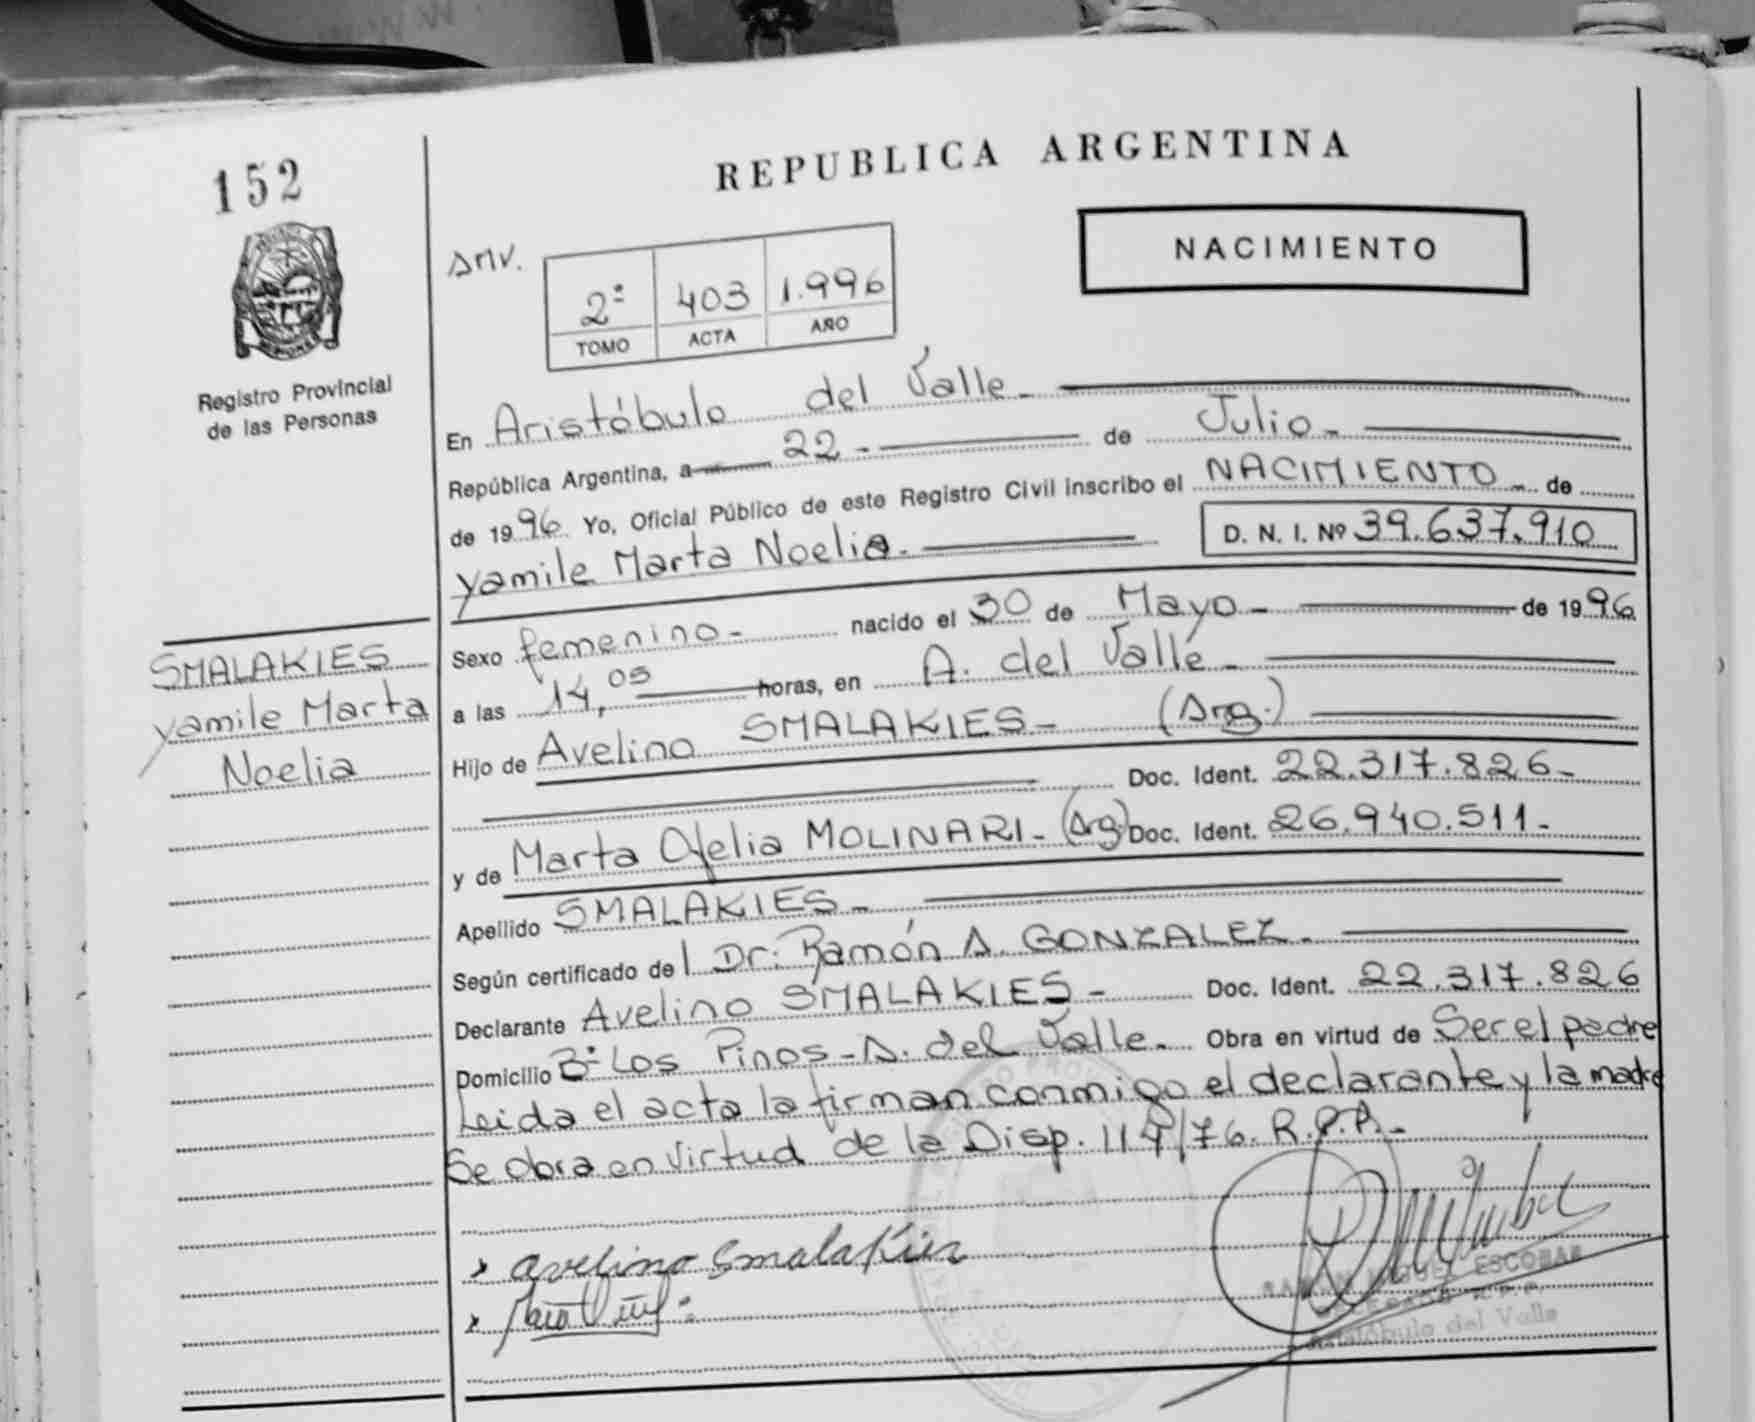 152
REPUBLICA ARGENTINA
NACIMIENTO
2º 403 1.996
TOMO ACTA AÑO
Registro Provincial
de las Personas
En Aristóbulo del Valle.
República Argentina, a 22 - de Julio -
de 1996 Yo, Oficial Público de este Registro Civil inscribo el NACIMIENTO de
Yamile Marta Noelia. D. N. I. Nº 39.637.910
Sexo femenino - nacido el 30 de Mayo - de 1996
a las 14,05 horas, en A. del Valle -
SMALAKIES
Yamile Marta
Noelia
Hijo de Avelino SMALAKIES - (Arg.)
Doc. Ident. 22.317.826 -
y de Marta Ofelia MOLINARI - (Arg) Doc. Ident. 26.940.511 -
Apellido SMALAKIES -
Según certificado del Dr. Ramón A. GONZALEZ -
Declarante Avelino SMALAKIES - Doc. Ident. 22.317.826
Domicilio Bº Los Pinos - A. del Valle. Obra en virtud de Ser el padre
Leida el acta la firman conmigo el declarante y la madre
Se obra en virtud de la Disp. 114/76. R.P.P. -
Avelino Smalakies
ESCOBAR
Aristóbulo del Valle